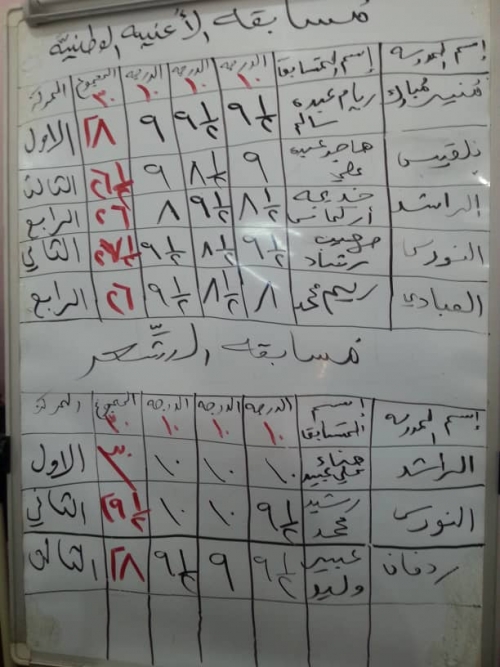 مسابقه الأغنيه الوطنيه
إسم المدرسه إسم المتسابق الدرجه ١٠ الدرجه ١٠ الدرجه ١٠ المجموع ٣٠ المركز
منير مبارك ريام عبده سالم ٩½ ٩½ ٩ ٢٨ الاول
بلقيس ٩ ٨½ ٩ ٢٦½ الثالث
الراشد خديجه ٨½ ٩½ ٨ ٢٦ الرابع
النورس رشاد ٩½ ٨½ ٩½ ٢٧½ الثاني
العبادي ريم محمد ٨ ٨½ ٩½ ٢٦ الرابع
مسابقه الشّعر
إسم المدرسه إسم المتسابق الدرجه ١٠ الدرجه ١٠ الدرجه ١٠ المجموع ٣٠ المركز
الراشد هناء علي عبيد ١٠ ١٠ ١٠ ٣٠ الاول
النورس رشيد محمد ٩½ ١٠ ١٠ ٢٩½ الثاني
ردفان عبير وليد ٩½ ٩ ٩½ ٢٨ الثالث